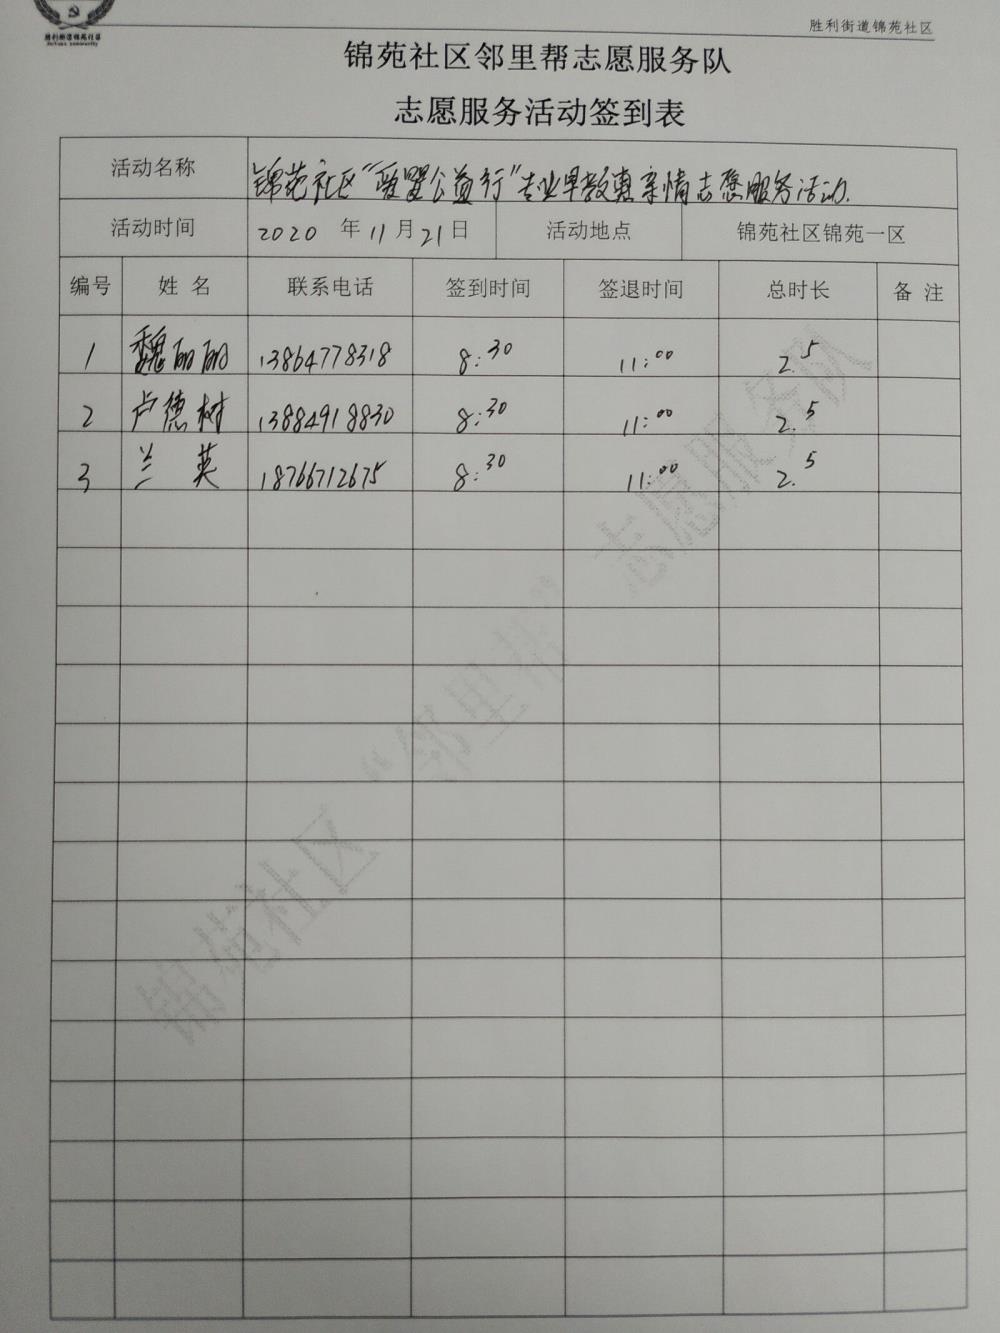 胜利街道锦苑社区
胜利街道锦苑社区
锦苑社区邻里帮志愿服务队
志愿服务活动签到表
活动名称 锦苑社区“爱婴公益行”专业早教惠亲情志愿服务活动.
活动时间 2020 年 11 月 21 日 活动地点 锦苑社区锦苑一区
编号 姓 名 联系电话 签到时间 签退时间 总时长 备 注
1 魏丽丽 13864778318 8:30 11:00 2.5
2 卢德树 13884918830 8:30 11:00 2.5
3 兰英 18766712675 8:30 11:00 2.5
锦苑社区“邻里帮”志愿服务队